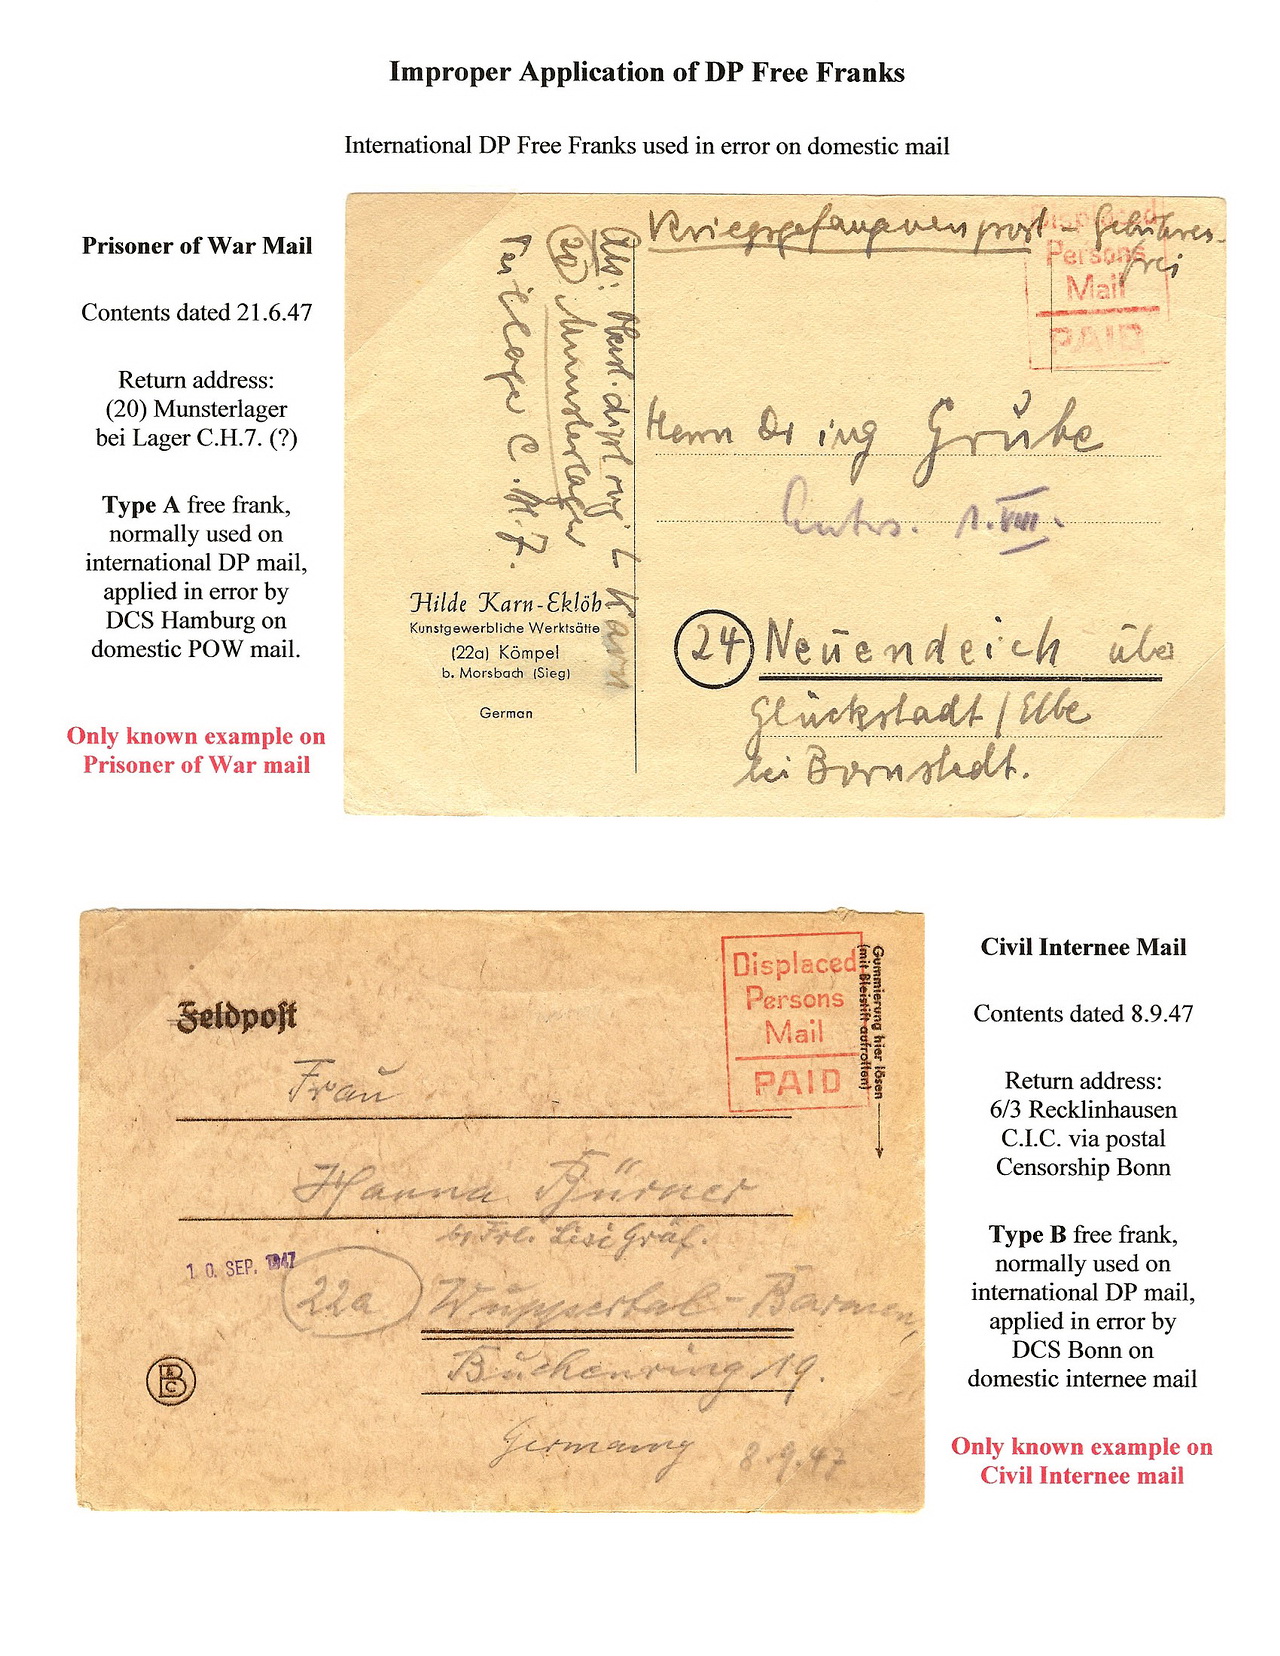 Improper Application of DP Free Franks
International DP Free Franks used in error on domestic mail
Prisoner of War Mail
Contents dated 21.6.47
Return address:
(20) Munsterlager
bei Lager C.H.7. (?)
Type A free frank,
normally used on
international DP mail,
applied in error by
DCS Hamburg on
domestic POW mail.
Only known example on
Prisoner of War mail
Kriegsgefangenenpost - Gebühren-
frei
Displaced
Persons
Mail
PAID
Abs:
(20) Munsterlager
C.H.7.
Herrn Dr ing Grube
1.VIII.
24 Neuendeich über
Glückstadt/Elbe
bei Bornstedt.
Hilde Karn-Eklöh
Kunstgewerbliche Werkstätte
(22a) Kömpel
b. Morsbach (Sieg)
German
Feldpost
Displaced
Persons
Mail
PAID
Gummierung hier lösen
(mit Bleistift aufrollen)
Frau
Hanna Bürner
b. Frl. Lisi Gräf.
10. SEP. 1947
22a Wuppertal-Barmen,
Buchenring 19.
Germany 8.9.47
Civil Internee Mail
Contents dated 8.9.47
Return address:
6/3 Recklinhausen
C.I.C. via postal
Censorship Bonn
Type B free frank,
normally used on
international DP mail,
applied in error by
DCS Bonn on
domestic internee mail
Only known example on
Civil Internee mail